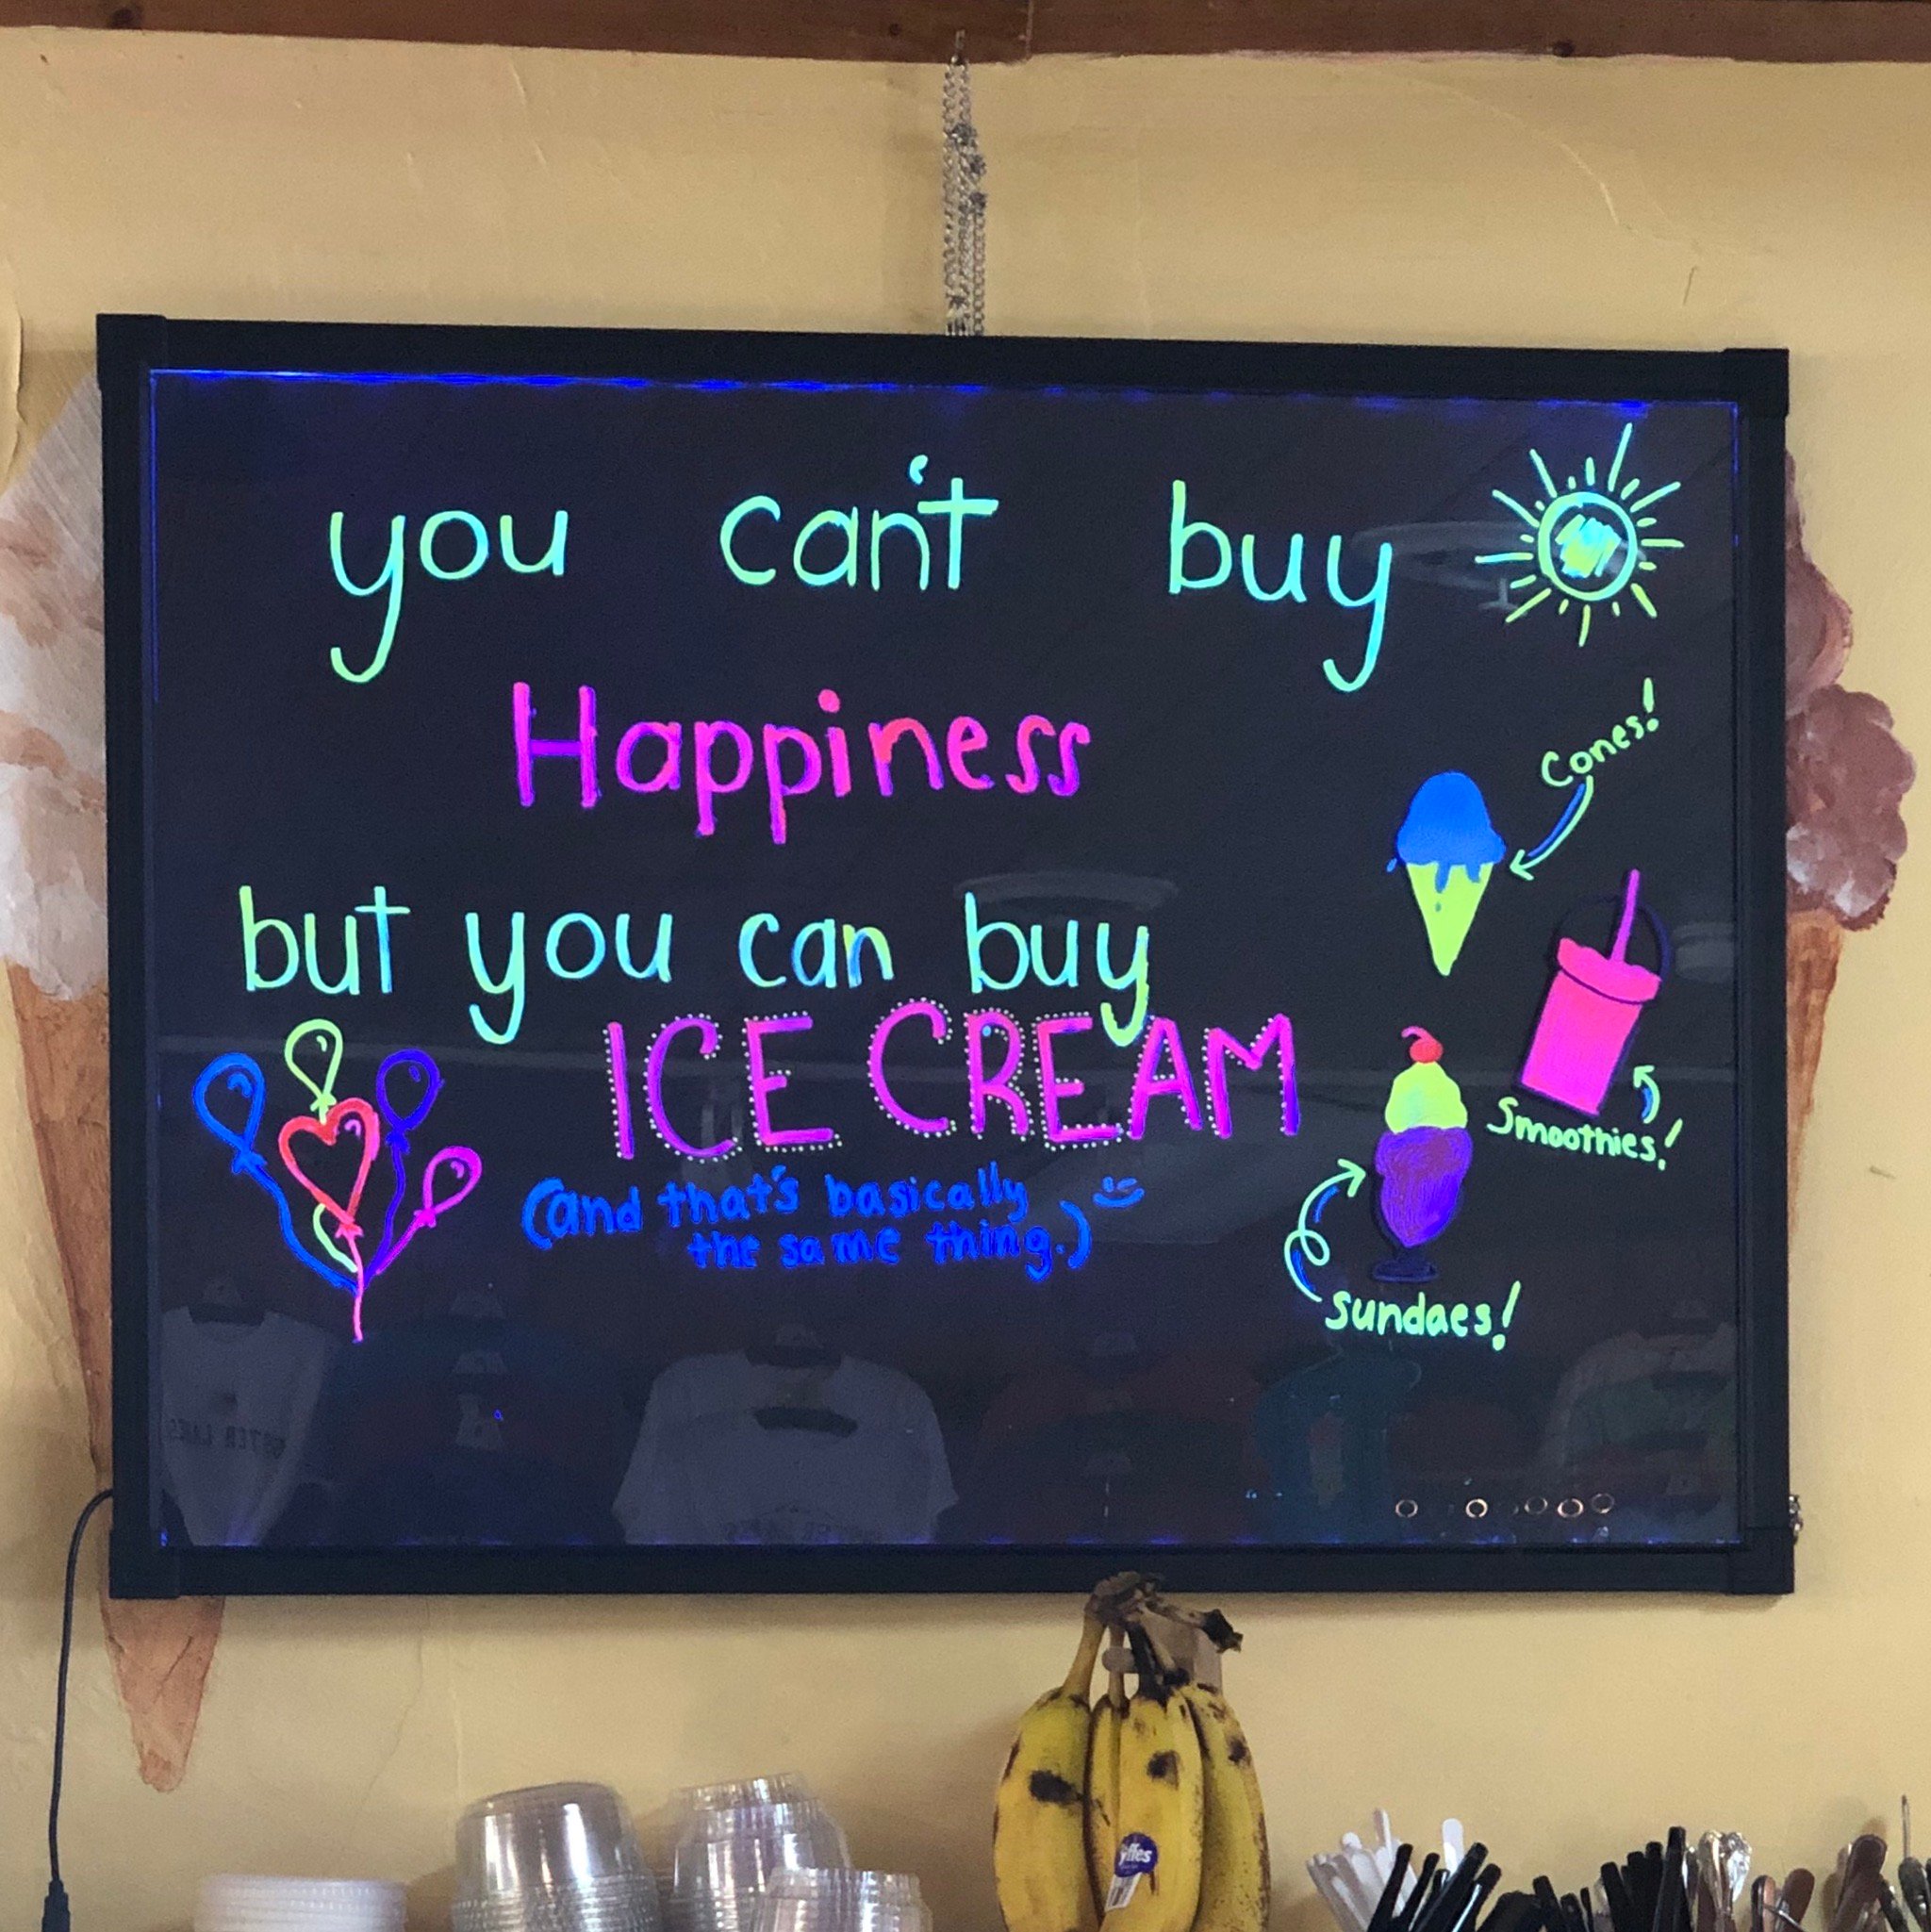 you can't buy
Happiness
but you can buy
ICE CREAM
(and that's basically
the same thing.)
Cones!
Smoothies!
sundaes!